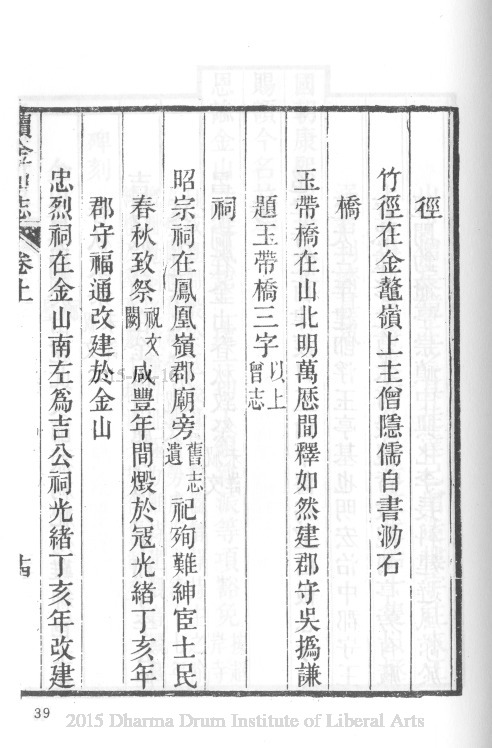 徑
竹徑在金鼇嶺上主僧隱儒自書泐石
橋
玉帶橋在山北明萬厯間釋如然建郡守吳撝謙
題玉帶橋三字以上曾志
祠
昭宗祠在鳳凰嶺郡廟旁舊志遺祀殉難紳宦士民
春秋致祭祝文闕咸豐年間燬於冦光緒丁亥年
郡守福通改建於金山
忠烈祠在金山南左爲吉公祠光緒丁亥年改建
續金山志
卷上
39
2015 Dharma Drum Institute of Liberal Arts